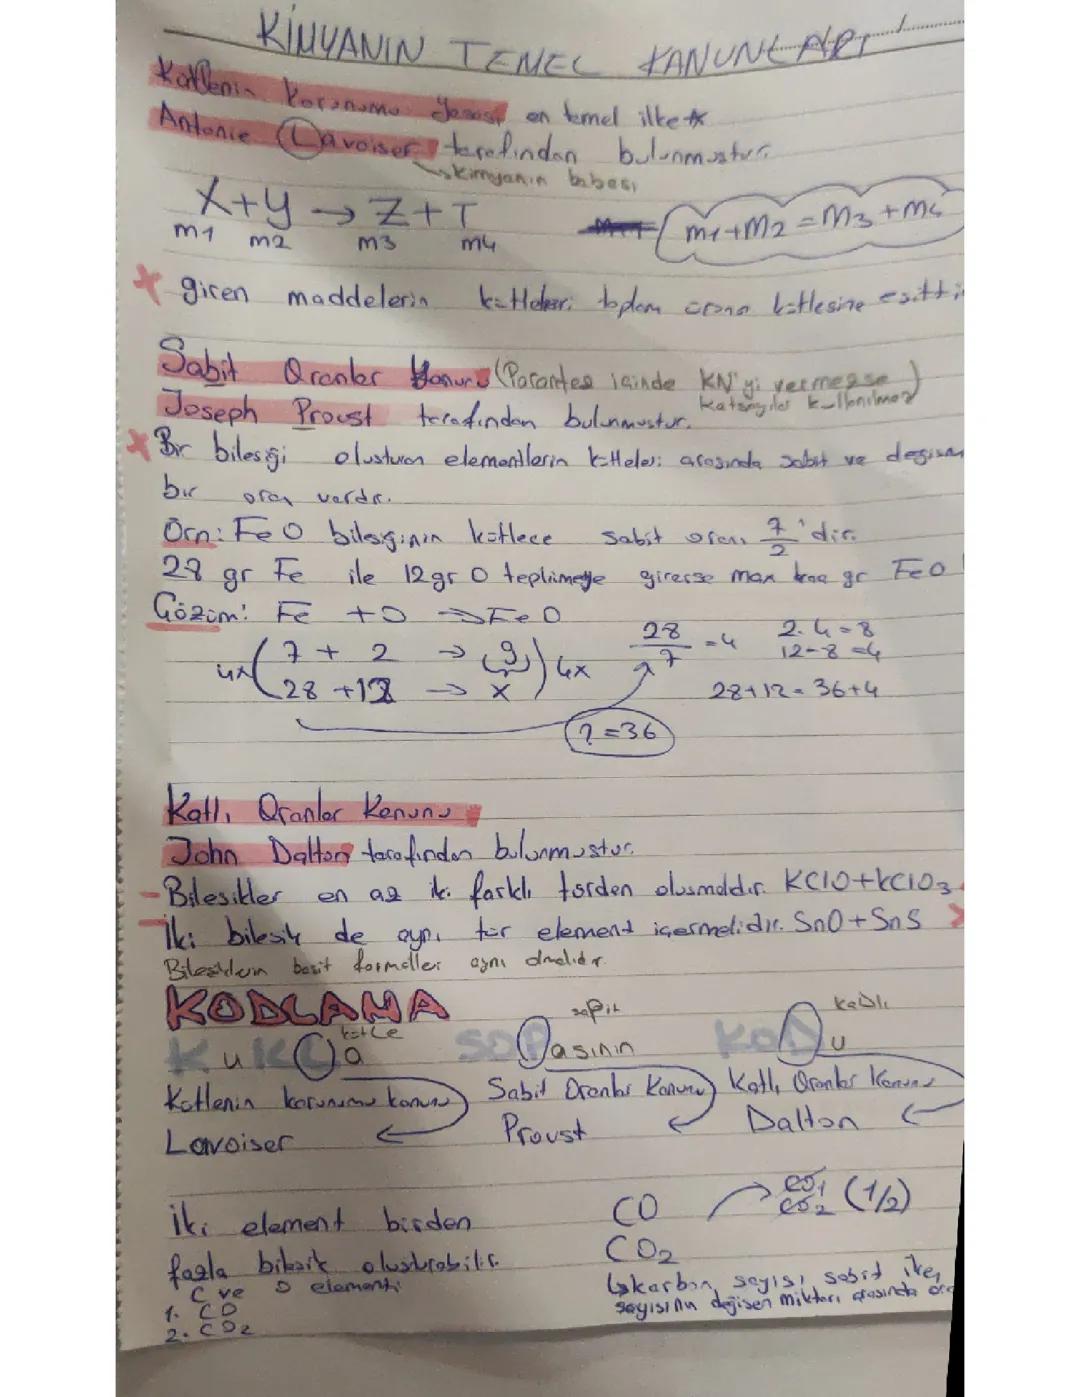 KİMYANIN TEMEL KANUNLARI
Kütlenin Korunumu Yasası en temel ilke *
Antonie Lavoiser tarafından bulunmuştur.
↳kimyanın babası
X+Y → Z+T
m1 m2 m3 m4
m1+m2=m3+m4
* giren maddelerin kütleleri toplam ürün kütlesine eşittir
Sabit Oranlar Kanunu (Parantez içinde KN'yi vermezse
katsayılar kullanılmaz)
Joseph Proust tarafından bulunmuştur.
* Bir bileşiği oluşturan elementlerin kütleleri arasında sabit ve değişm
bir oran vardır.
Örn: FeO bileşiğinin kütlece sabit oranı 7/2 'dir.
28 gr Fe ile 12 gr O tepkimeye girerse max kaç gr FeO
Çözüm: Fe + O → FeO
4x ( 7 + 2 → 9 ) 4x 28/7 =4 2.4=8
12-8=4
28 +12 → x 28+12=36+4
?=36
Katlı Oranlar Kanunu
John Dalton tarafından bulunmuştur.
- Bileşikler en az iki farklı türden oluşmalıdır. KClO+KClO3
- İki bileşik de aynı tür element içermelidir. SnO+SnS
Bileşiklerin basit formülleri aynı olmalıdır.
KODLAMA
kütle sabit katlı
KuKLa SOPasının KODu
Kütlenin korunumu kanunu Sabit Oranlar Kanunu Katlı Oranlar Kanunu
Lavoiser Proust Dalton
İki element birden
fazla bileşik oluşturabilir.
C ve O elementi
1. CO
2. CO2
CO → CO1 (1/2)
CO2 CO2
↳karbon sayısı sabit iken
sayısının değişen miktarı arasında